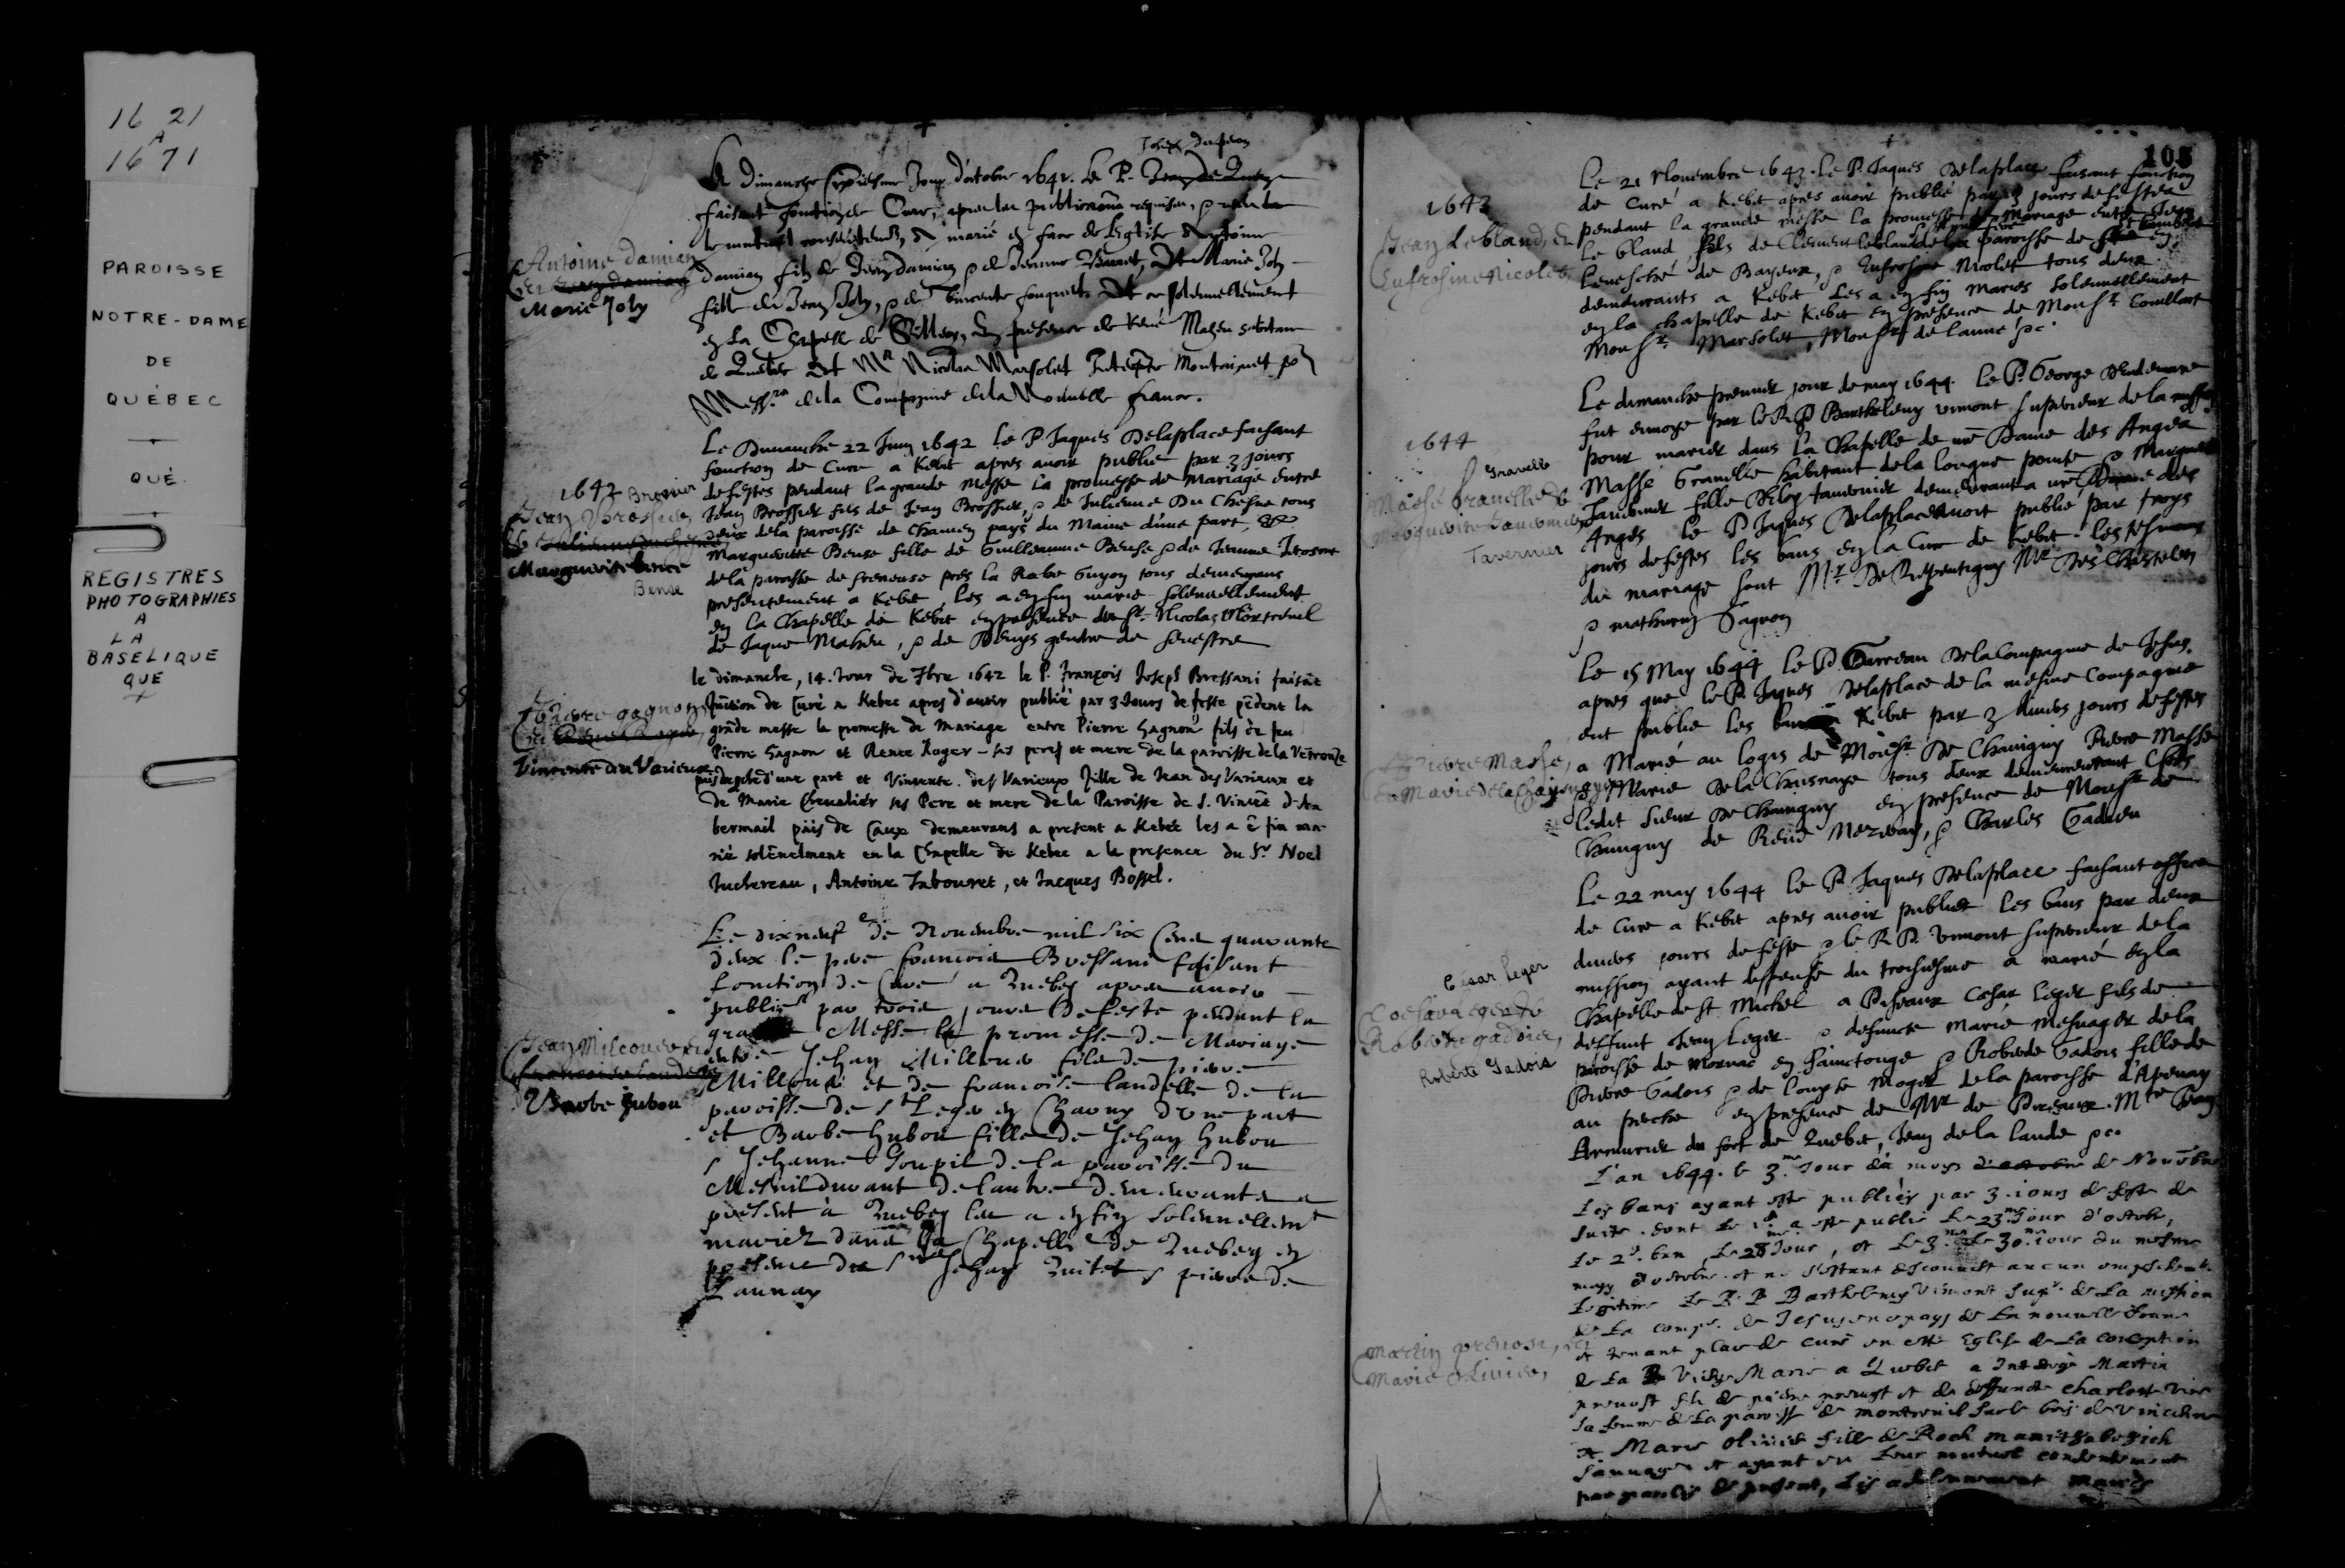 16 21
A
16 71
PAROISSE
NOTRE-DAME
DE
QUÉBEC
QUÉ.
REGISTRES
PHOTOGRAPHIES
A
LA
BASELIQUE
QUE
Joseph du peron
Le dimanche Jour d'octobre 1641. Le P.
faisant fonction de Cure, apres les publications requises, et
marié en face de Leglise Antoine
Antoine damien
Marie Joly
damien filz de Jean damien et de Jeanne Et Marie Joly
fille de Jean Joly, et de Vincente fouquet Et ce solennellement
en La Chapelle de En presence de René Maheu
de Quebec Et Mr Nicolas Marsolet Montaignet pr
Messrs de la Compagnie de la Nouvelle france.
1642
Brossier
Jean Brossier
Marguerite
Bense
Le Dimanche 22 Juin 1642 le P. Jaques Delaplace faisant
fonction de Cure a Kebec apres auoir publié par 3 jours
de festes pendant la grande Messe la promesse de Mariage entre
Jean Brossier fils de Jean Brossier, et de Julienne Du Chesne tous
deux de la paroisse de pays du Maine d'une part, &
Marguerite Bense fille de Guilleaume Bense et de Jeanne
de la paroisse de freneuse pres la Roche Guyon tous demeurans
presentement a Kebec, les a enfin marié solennellement
en la Chapelle de Kebec en presence de Sr. Nicolas
de Jaque Maheu, et de Denys gendre de Seuestre
Pierre gagnon
Vincente des Varieux
le dimanche, 14. Jour de 7bre 1642 le P. François Joseph Bressani faisãt
fonction de Curé a Kebec apres d'auoir publié par 3 Jours de feste pẽdent la
grãde messe la promesse de Mariage entre Pierre Gagnon fils de feu
Pierre Gagnon et Renée Roger ses pere et mere de la paroisse de la
d'une part et Vincente des Varieux fille de Jean des Varieux et
de Marie Cheualier ses Pere et mere de la Paroisse de S. Vincẽt d'Au
bermail païs de Caux demeurans a present a Kebec les a ẽ fin ma-
rié solẽnelment en la Chapelle de Kebec a la presence du Sr Noel
Juchereau, Antoine Tabouret, et Jacques Bossel.
Jean Milloues
Barbe hubou
Le dixneuf de Nouembre mil six Cent quarante
deux le pere francois Bressani faisant
fonction de Curé a Quebeq apres auoir
publié par trois jours De feste pendant la
Messe la promesse de Mariage
entre Jehan Milloue fils de pierre
Milloue et de francoise landelle de la
paroisse de St Leger en d'une part
et Barbe hubou fille de Jehan hubou
et Jehanne Goupil de la paroisse du
Mesnil durant de l'autre demeurants a
present à Quebeq les a enfin solennellemt
mariez dans la Chapelle de Quebeq en
presence de Jehan Guitet et pierre de
Launay
103
1643
Jean Lebland, Et
Eufrosine Nicolet
Le 21 Nouembre 1643. le P. Jaques Delaplace faisant fonction
de Curé a Kebec apres auoir publié par 3 jours de festes
pendant la grande messe la promesse de Mariage entre Jean
le bland, fils de Clement leblanc de la paroisse de
l'euesché de Bayeux, et Eufrosine Nicolet tous deux
demeurants a Kebec Les a enfin Mariés solennellement
en la chapelle de Kebec en presence de Monsr. Couillart
Monsr. Marsolet, Monsr de launé &c.
1644
Gravelle
Massé Grauelle &
Marguerite tauernier
Tavernier
Le dimanche premier jour de may 1644. Le P. George
fut enuoyé par le R. P. Barthelemy vimont superieur de la mission
pour marier dans la Chapelle de nre Dame des Anges
Massé Grauelle habitant de la longue pointe et Marguerite
Tauernier fille d'Eloy tauernier demeurant a nre Dame des
Anges le P. Jaques Delaplace auoit publié par troys
jours de festes les bans en la Cure de Kebec. les tesmoins
du mariage sont Mr De Repentigny Mr Des Chastelets
et mathurin Gagnon
Pierre Masse,
Marie de la
Le 15 May 1644 le P. Garreau de la Compagnie de Jesus
apres que le P. Jaques Delaplace de la mesme Compagnie
eut publié les bans a Kebec par 3 diuers jours de festes
a Marié au logis de Monsr De Chauigny Pierre Massé
et Marie De la tous deux demeurant Chés
ledit sieur De Chauigny en presence de Monsr de
Chauigny de René Mezeray, et Charles Gadieu
César Leger
Roberte gadois,
Roberte Gadois
Le 22 may 1644 le P. Jaques Delaplace faisant office
de Cure a Kebec apres auoir publiés les bans par deux
diuers jours de feste et le R P. vimont superieur de la
mission ayant dispensé du troisiesme a marié en la
Chapelle de St Michel a Cesar leger fils de
deffunt Jean Leger et defuncte Marie Mesnager de la
paroisse de Mornac en Sainctonge et Roberte Gadois fille de
Pierre Gadois et de Louyse Moger de la paroisse d'
au perche en presence de Mr de Mtre Jean
Armurier du fort de Quebec, Jean de la lande &c.
Martin preuost, et
Marie oliuier,
L'an 1644. le 3.me Jour du moys de Nouẽbre
Les bans ayant esté publiés par 3. iours de feste de
suite. dont le a esté publié Le 23.me Jour d'octobre,
Le 2d. ban Le 28 Jour, et Le 3.me Le 30.me iour du mesme
moys d'octobre. et ne s'estant descouuert aucun empeschemt.
Legitime le R. P Barthelemy Vimont supr. de La mission
de La compe. de Jesus en ce pays de La nouuelle france
et tenant place de curé en cette Eglise de La conception
de La Vierge Marie a Quebec a Martin
preuost fils de pierre preuost et de deffuncte charlotte
sa femme de La paroisse de montreuil sur le bois de Vincennes
et Marie oliuier fille de Roch
sauuage et ayant eu Leur mutuel consentement
par parolles de present, Les a solennement mariés